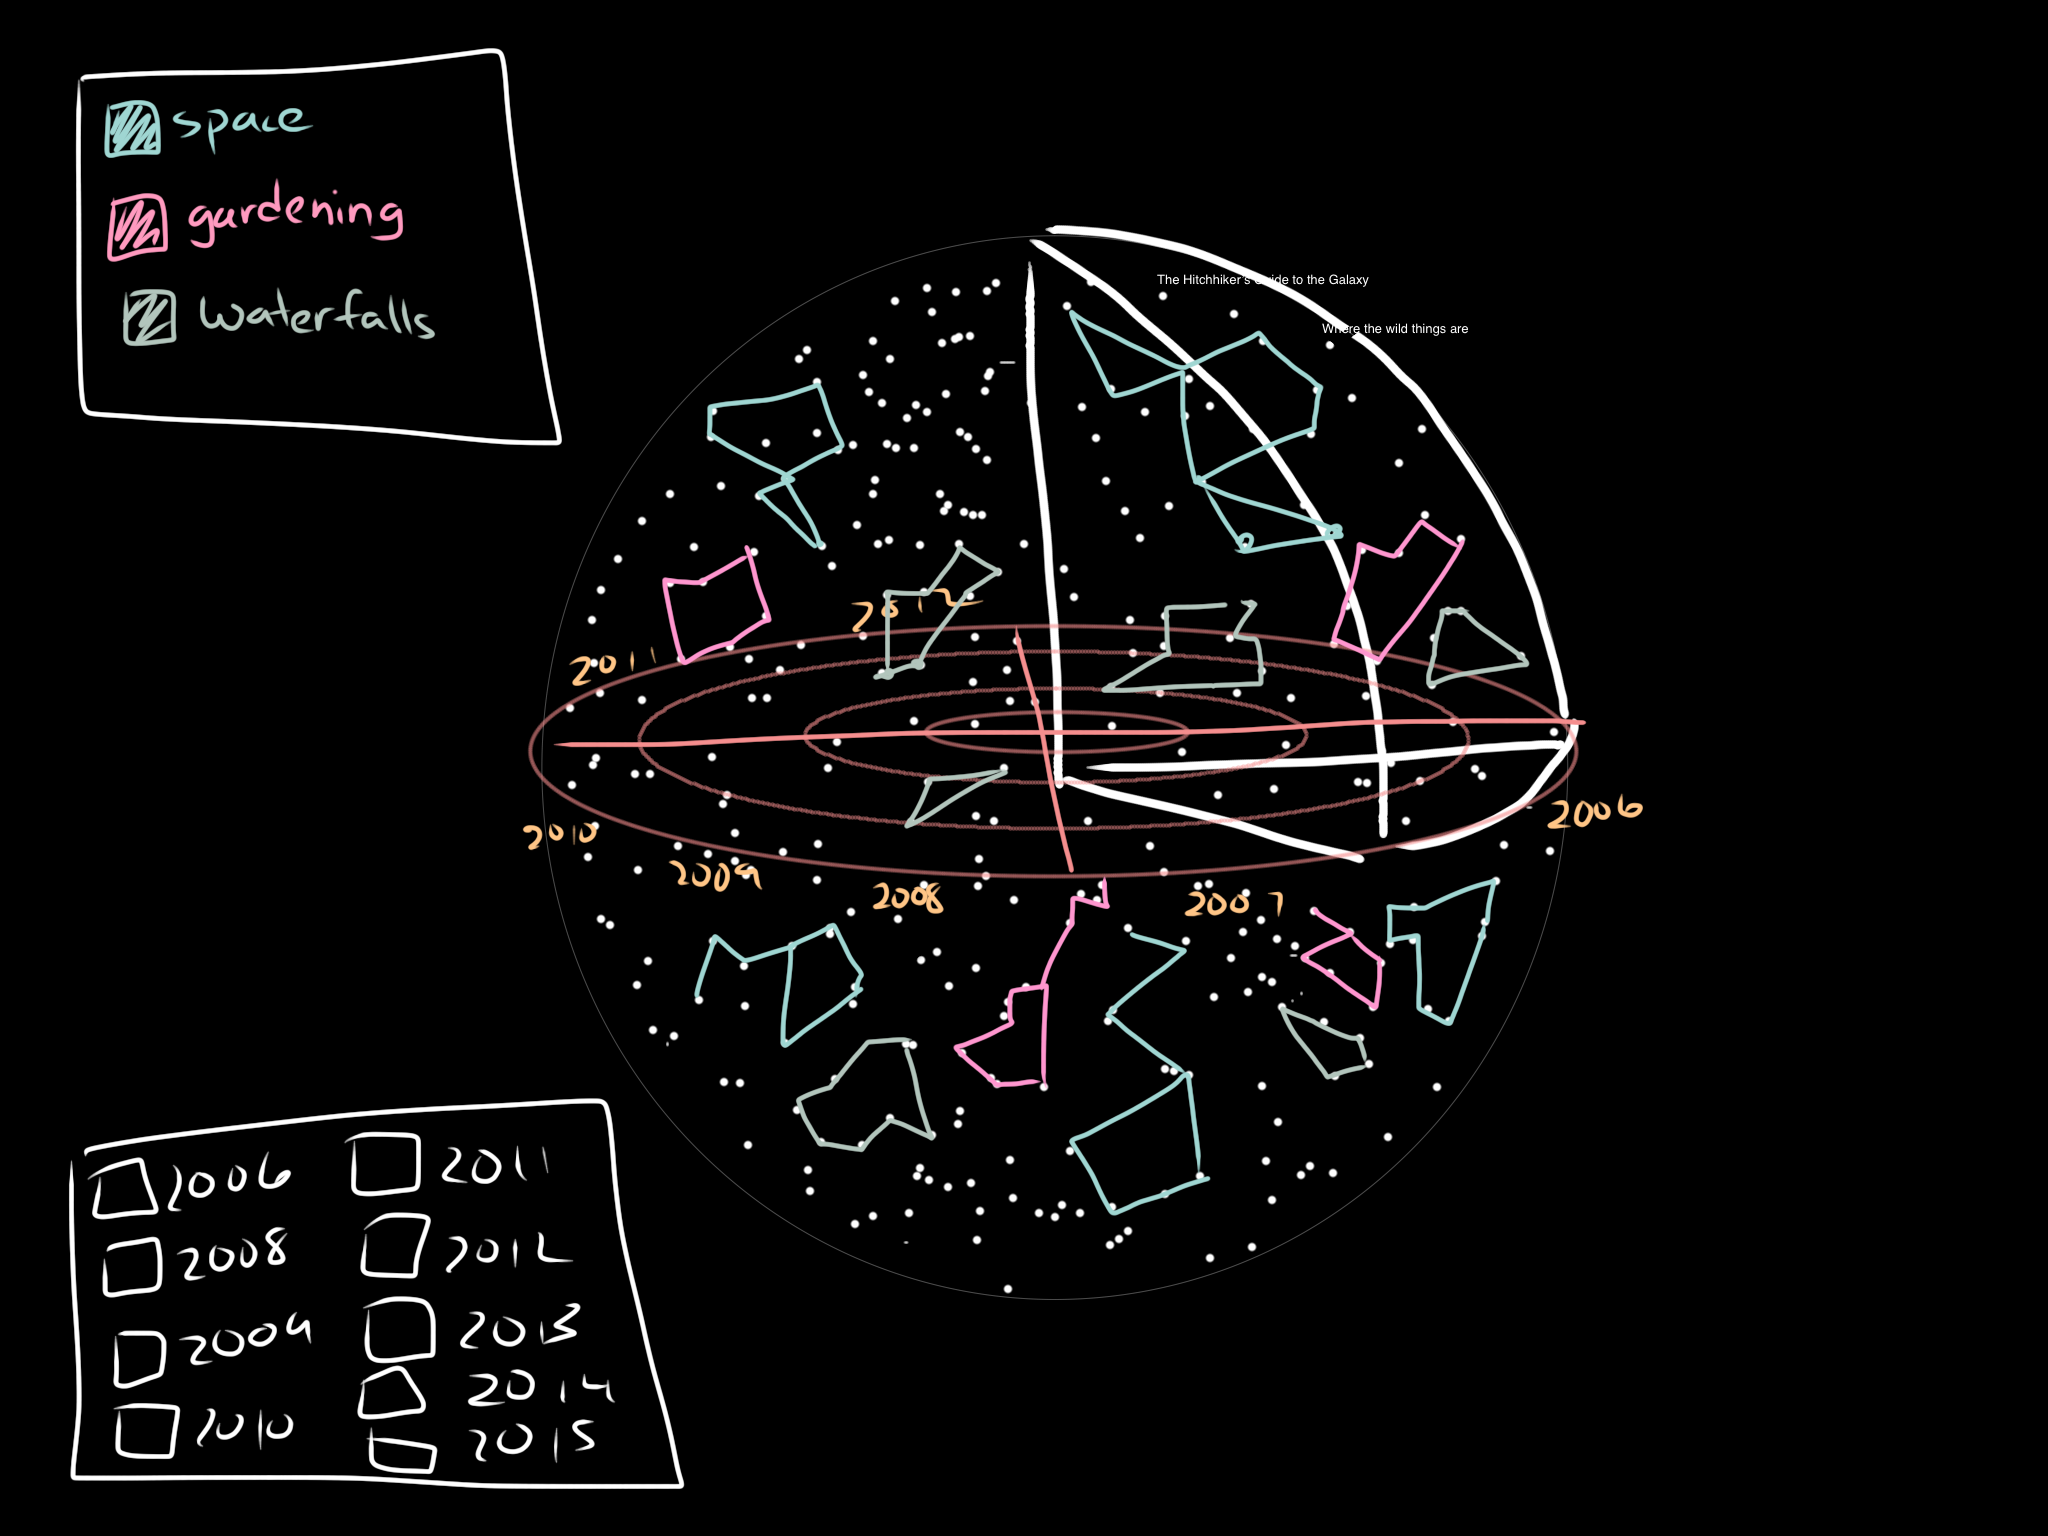 space
gardening
waterfalls
The Hitchhiker's Guide to the Galaxy
Where the wild things are
2012
2011
2010
2009
2008
2007
2006
2006
2008
2009
2010
2011
2012
2013
2014
2015